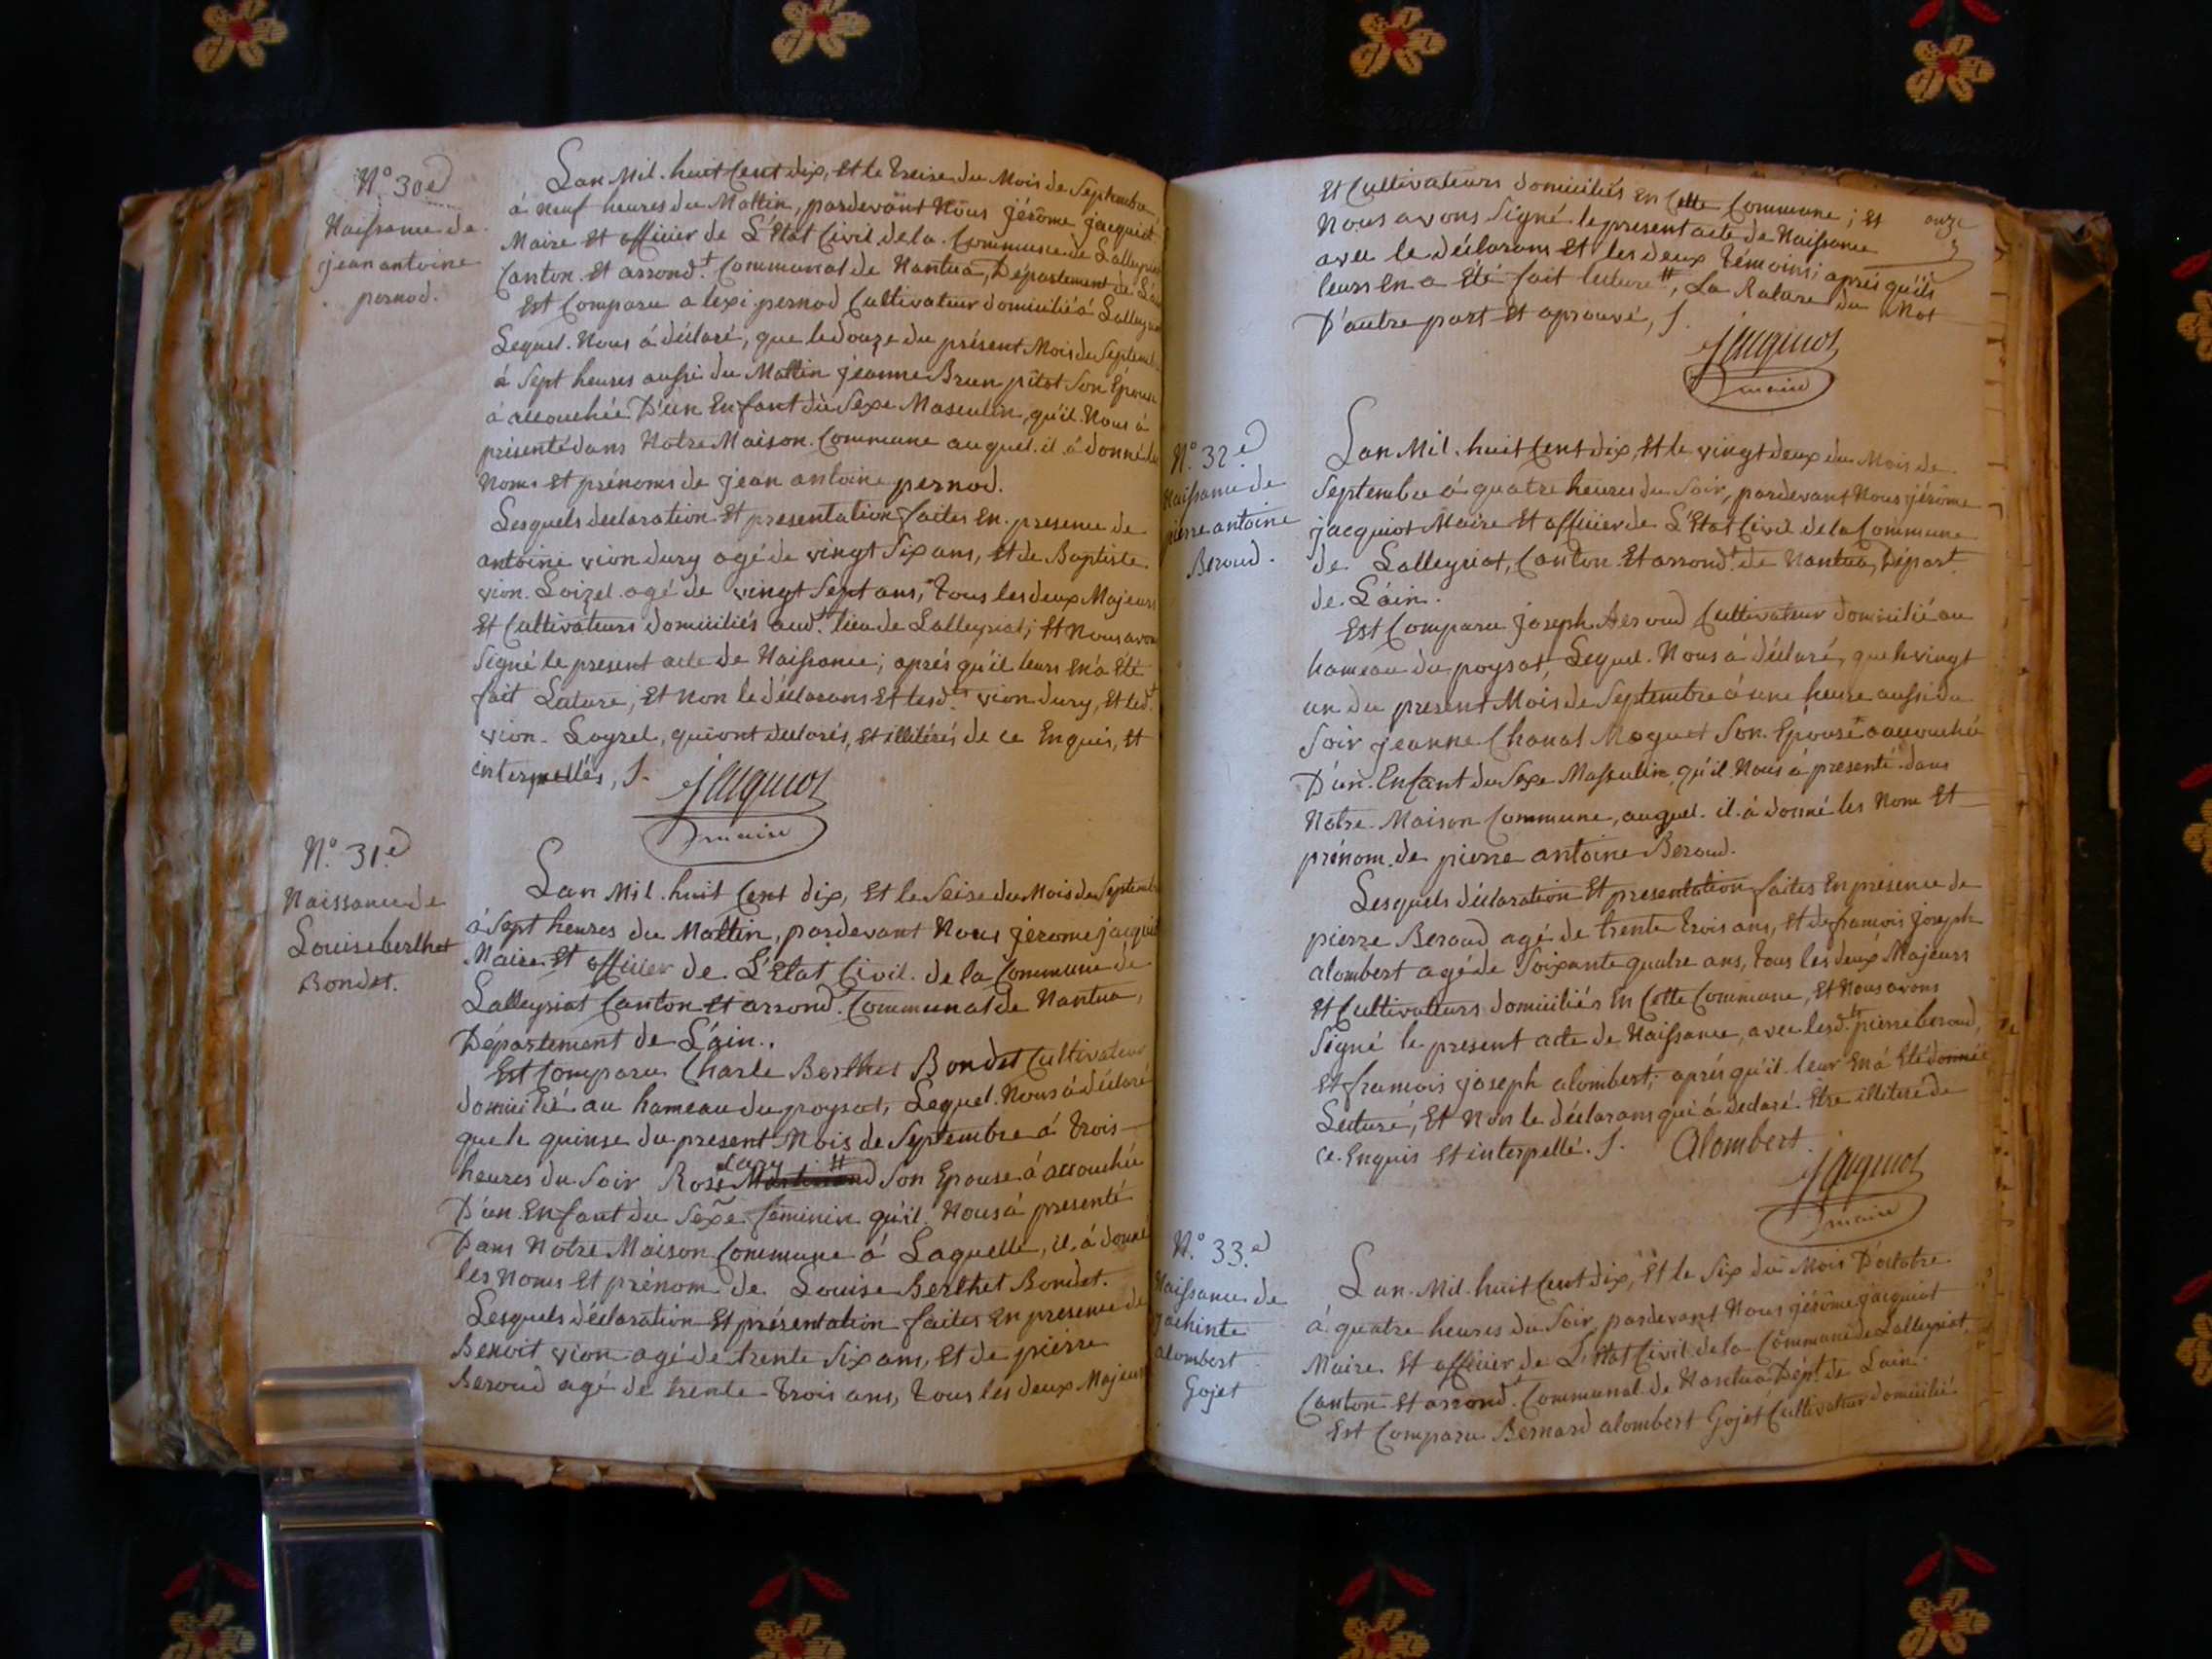 N.° 30.e
Naissance de
jean antoine
pernod.
Lan Mil. huit Cent dix, Et le treise du Mois de Septembre,
à Neuf heures du Mattin, pardevant Nous jérôme jacquiot
Maire Et officier de L'État Civil de la Commune de Lalleyriat
Canton Et arrond.t Communal de Nantua, Département de L'ain
Est Comparu alexi pernod Cultivateur domicilié á Lalleyriat
Lequel Nous á déclaré, que le douze du présent Mois de Septembre
á Sept heures aussi du Mattin jéanne Brun pitot Son Épouse
á accouchée D'un Enfant du Sexe Masculin, qu'il Nous á
présenté dans Notre Maison Commune auquel il á donné les
Noms Et prénoms de jean antoine pernod.
Lesquels declaration Et presentation faites En presence de
antoine vion dury agé de vingt Six ans, Et de Baptiste
vion Loizel agé de vingt Sept ans, Tous les deux Majeurs
Et Cultivateurs domiciliés aud.t lieu de Lalleyriat; Et Nous avons
Signé le present acte de Naissance; aprés qu'il leurs En á Été
fait Lature, Et Non le déclarans Et lesd.ts vion dury, Et led.t
vion Loyzel, qui ont declarés, Et illitérés de ce Enquis, Et
interpellés, J. jacquiot
maire
N.° 31.e
Naissance de
Louise berthet
Bondet.
Lan Mil. huit Cent dix, Et le Seise du Mois de Septembre
á Sept heures du Mattin, pardevant Nous jérome jacquiot
Maire Et officier de L'État Civil de la Commune de
Lalleyriat Canton Et arrond.t Communal de Nantua,
Département de L'ain.
Est Comparu Charle Berthet Bondet Cultivateur
domicilié au hameau du poysat, Lequel Nous á déclaré
que le quinse du present Mois de Septembre á trois
heures du Soir Rose Son Epouse á accouchée
D'un Enfant du Sexe féminin qu'il Nous á presenté
Dans Notre Maison Commune á Laquelle, il á donné
les Noms Et prénom de Louise Berthet Bondet.
Lesquels déclaration Et présentation faites En presence de
Benoit vion agé de trente Six ans, Et de pierre
Beroud agé de trente trois ans, tous les deux Majeurs
Et Cultivateurs domiciliés En Cette Commune; Et onze
Nous avons Signé le present acte de Naissance
avec le déclarans Et les deux témoins; aprés qu'ils
leurs En a Été fait lecture #, La Rature du Mot
D'autre part Et aprouvé, J.
jacquiot
maire
N.° 32.e
Naissance de
pierre antoine
Beroud.
Lan Mil. huit Cent dix, Et le vingt deux du Mois de
Septembre á quatre heures du Soir, pardevant Nous jérôme
jacquiot Maire Et officier de L'Etat Civil de la Commune
de Lalleyriat, Canton Et arrond.t de Nantua, Départ.
de L'ain.
Est Comparu joseph Beroud Cultivateur domicilié au
hameau du poysat, Lequel Nous á déclaré, que le vingt
un du present Mois de Septembre á une heure aussi du
Soir jeanne Chanal Moguet Son Épouse á accouchée
D'un Enfant du Sexe Masculin qu'il Nous á presenté dans
Notre Maison Commune, auquel il á donné les Nom Et
prénom de pierre antoine Beroud.
Lesquels déclaration Et presentation faites En présence de
pierre Beroud agé de trente trois ans, Et de francois joseph
alombert agé de Soixante quatre ans, tous les deux Majeurs
Et Cultivateurs domiciliés En Cette Commune, Et Nous avons
Signé le present acte de Naissance, avec lesd.ts pierre beroud,
Et francois joseph alombert; aprés qu'il leur En á Été donnée
Lecture, Et Non le déclarans qui á declaré Etre illitéré de
ce Enquis Et interpellé. J. Alombert
jacquiot
maire
N.° 33.e
Naissance de
jachinte
alombert
Gojet
Lan Mil. huit Cent dix, Et le Six du Mois D'octobre
á quatre heures du Soir, pardevant Nous jérôme jacquiot
Maire Et officier de L'Etat Civil de la Commune de Lalleyriat,
Canton Et arrond.t Communal de Nantua Dép.t de Lain.
Est Comparu Bernard alombert Gojet Cultivateur domicilié